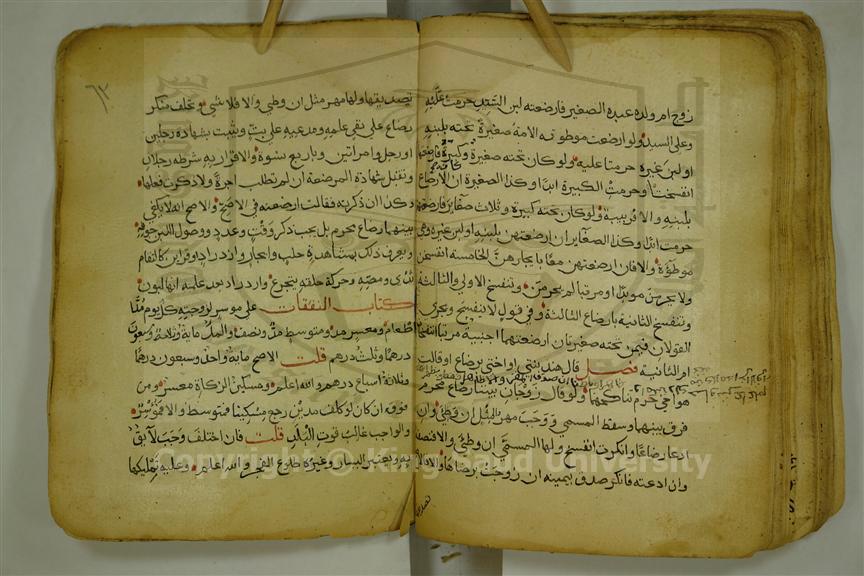 زوج ام ولده عبده الصغير فارضعته لبن السيد حرمت عليه
وعلى السيد ولو ارضعت موطوءته الامة صغيرة تحته بلبنه
او لبن غيره حرمتا عليه ولو كان تحته صغيرة وكبيرة فارضعتها
انفسختا وحرمت الكبيرة ابدا وكذا الصغيرة ان الارضاع
بلبنه والا فربيبة ولو كان تحته كبيرة وثلاث صغاير فارضعتهن
حرمت ابدا وكذا الصغاير ان ارضعتهن بلبنه او لبن غيره وهي
موطوءة والا فان ارضعتهن معا بايجارهن الخامسة انفسخن
ولا يحرمن موبدا او مرتبا لم يحرمن وتنفسخ الاولى والثالثة
وتنفسخ الثانية بارضاع الثالثة وفي قول لا ينفسخ ويجري
القولان فيمن تحته صغيرتان ارضعتهما اجنبية مرتبا اينفسخان
او الثانية فصل قال هند بنتي او اختي برضاع او قالت
هو اخي حرم تناكحهما ولو قال زوجان بيننا رضاع محرم
فرق بينهما وسقط المسمى ووجب مهر المثل ان وطئ وان
ادعا رضاعا وانكرت انفسخ ولها المسمى ان وطئ والا فنصفه
وان ادعته فانكر صدق بيمينه ان زوجت برضاها والا فالاصح
تصديقها ولها مهر مثل ان وطئ والا فلا شي ويحلف منكر
رضاع على نفي علمه ومدعيه على بت ويثبت بشهادة رجلين
او رجل وامراتين وباربع نسوة والاقرار به شرطه رجلان
وتقبل شهادة المرضعة ان لم تطلب اجرة ولا ذكرت فعلها
وكذا ان ذكرته فقالت ارضعته في الاصح والاصح انه لا يكفي
بينهما رضاع محرم بل يجب ذكر وقت وعدد ووصول اللبن جوفه
ويعرف ذلك بمشاهدة حلب وايجار وازدراد او قراين كالتقام
ثدي ومصه وحركة حلقه بتجرع وازدراد بعد علمه انها لبون
كتاب النفقات على موسر لزوجته كل يوم مدا
طعام ومعسر مد ومتوسط مد ونصف والمد مائة وثلاثة وسبعون
درهما وثلث درهم قلت الاصح مائة واحد وسبعون درهما
وثلاثة اسباع درهم والله اعلم ومسكين الزكاة معسر ومن
فوقه ان كان لو كلف مدين رجع مسكينا فمتوسط والا فموسر
والواجب غالب قوت البلد قلت فان اختلف وجب لايق
به ويعتبر اليسار وغيره طلوع الفجر والله اعلم وعليه تمليكها
Copyright © King Saud University